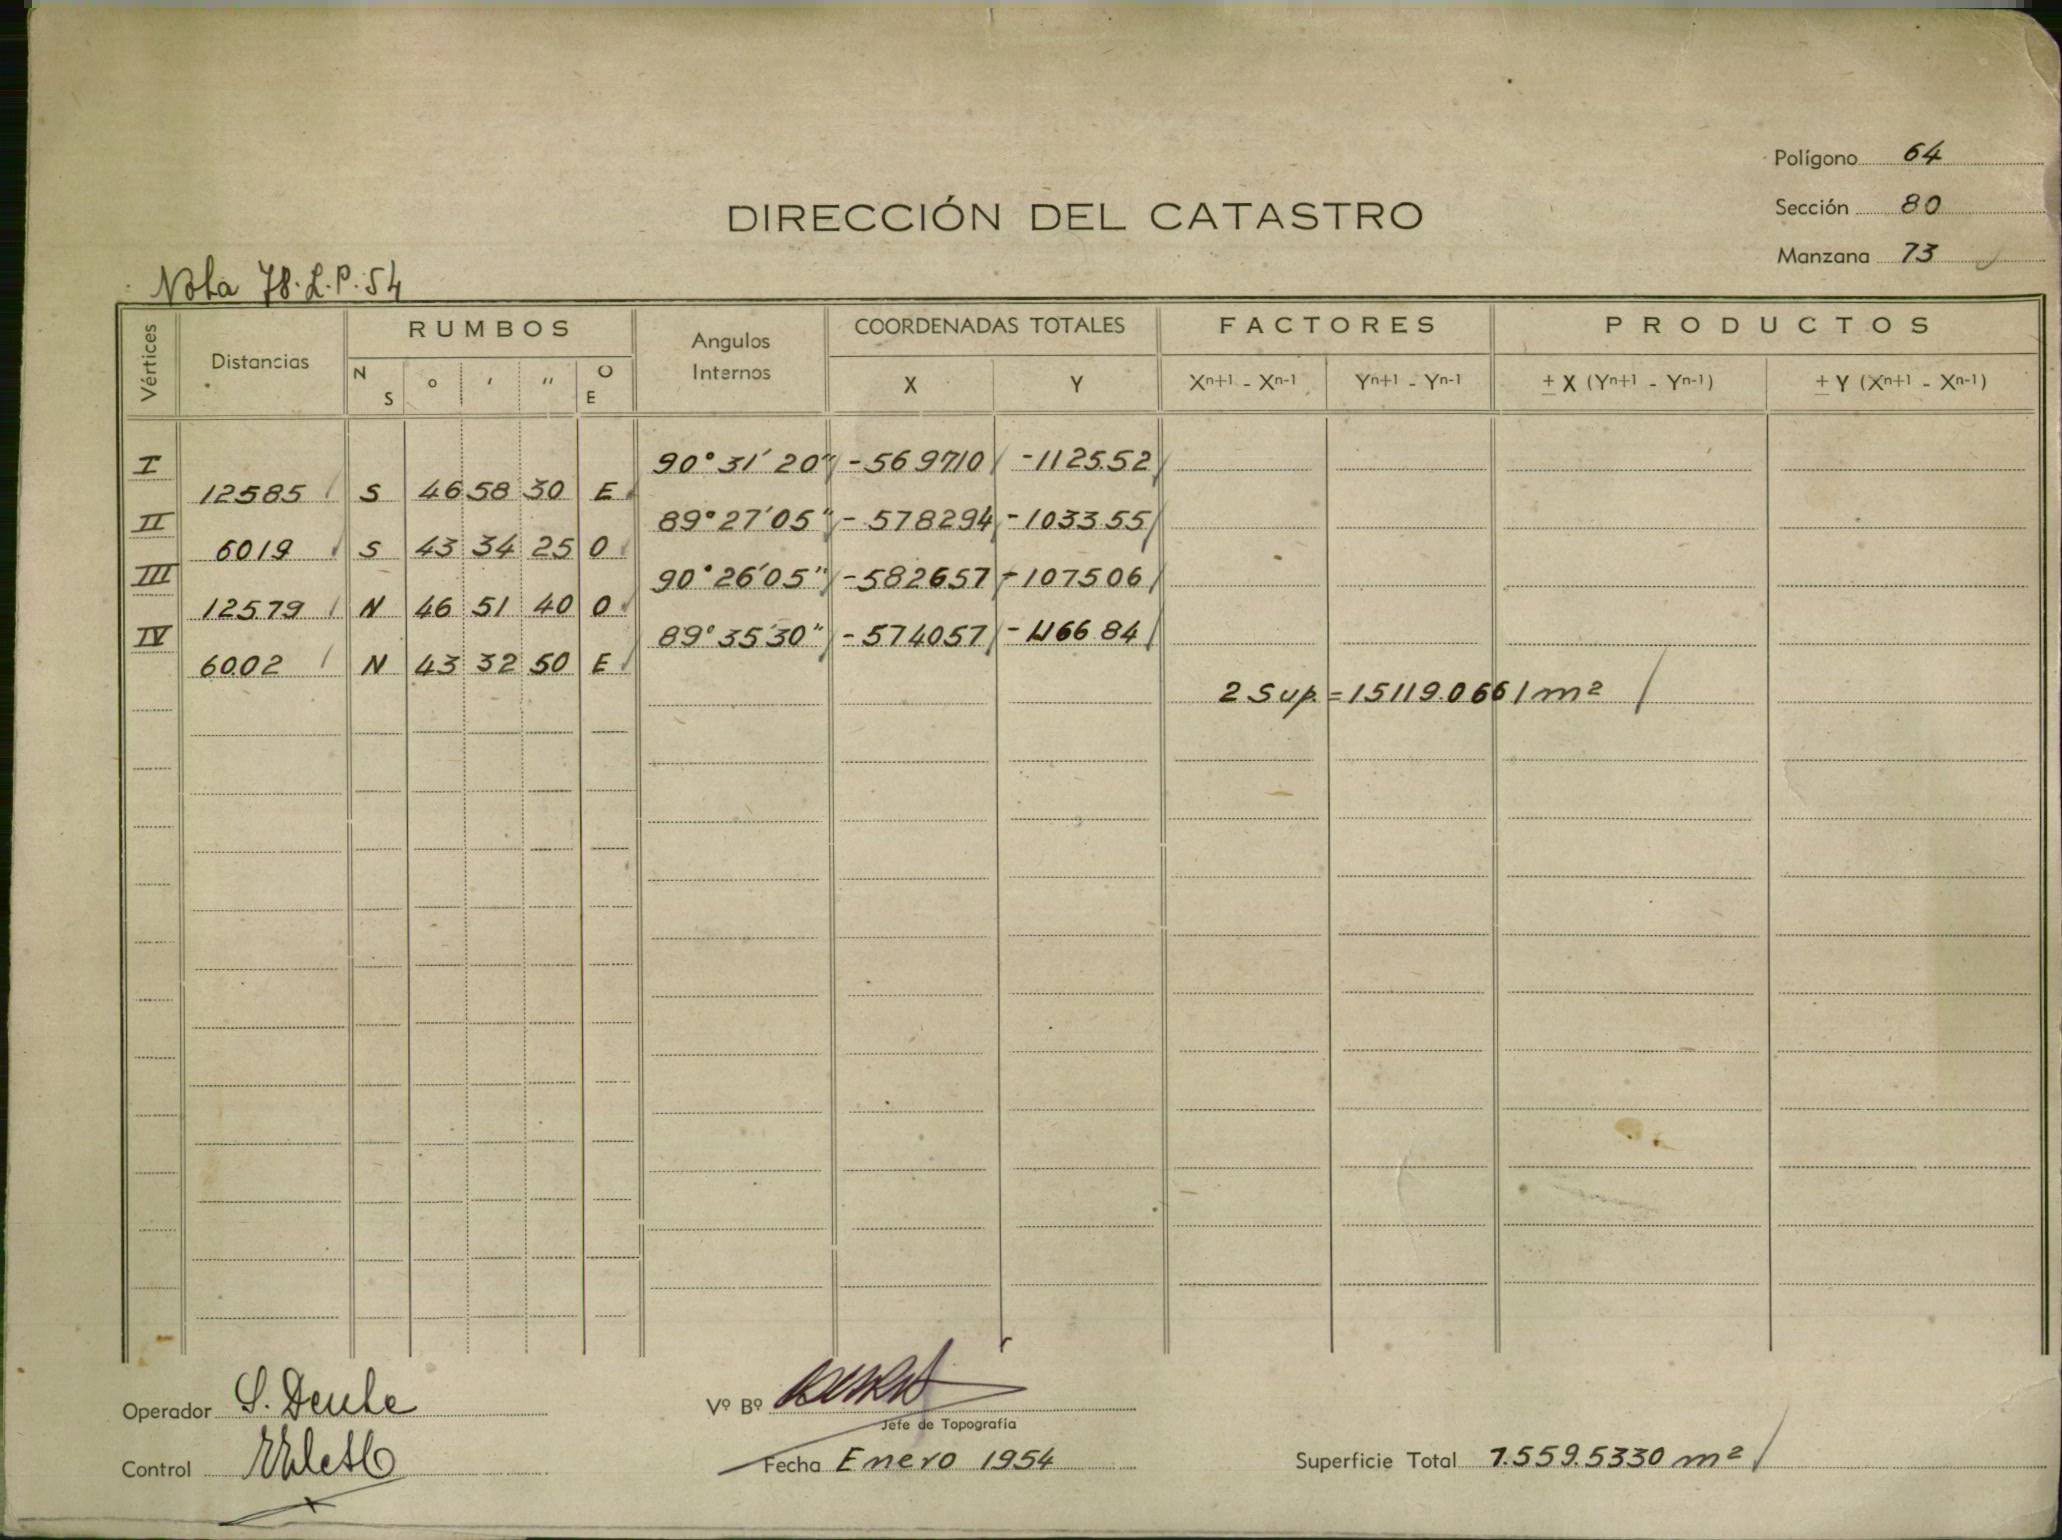 Polígono 64
DIRECCIÓN DEL CATASTRO
Sección 80
Manzana 73
Nota 78.L.P.54
Vértices Distancias RUMBOS Angulos Internos COORDENADAS TOTALES FACTORES PRODUCTOS
N S ° ' " O E X Y Xn+1 - Xn-1 Yn+1 - Yn-1 ± X (Yn+1 - Yn-1) ± Y (Xn+1 - Xn-1)
I 90° 31' 20" -5697.10 -1125.52
125.85 S 46 58 30 E
II 89° 27' 05" -5782.94 -1033.55
60.19 S 43 34 25 O
III 90° 26' 05" -5826.57 -1075.06
125.79 N 46 51 40 O
IV 89° 35' 30" -5740.57 -1166.84
60.02 N 43 32 50 E
2 Sup. = 15119.0661 m²
Operador S. Deube
Vº Bº
Jefe de Topografía
Control
Fecha Enero 1954
Superficie Total 7.559.5330 m²